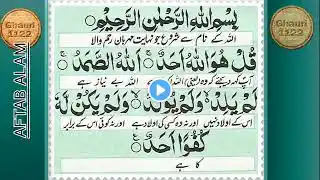 Ghauri
1122
Ghauri
1122
AFTAB ALAM
بِسْمِ اللهِ الرَّحْمٰنِ الرَّحِيْمِ
اللہ کے نام سے شروع جو نہایت مہربان رحم والا
قُلْ هُوَ اللهُ اَحَدٌ ۚ اَللهُ الصَّمَدُ ۚ
آپ کہہ دیجئے کہ وہ اللہ بے نیاز ہے
لَمْ يَلِدْ ۙ وَلَمْ يُوْلَدْ ۙ وَلَمْ يَكُنْ لَّهٗ
اس کے اولاد نہیں اور نہ وہ کسی کی اولاد ہے اور نہ کوئی اس کے برابر
كُفُوًا اَحَدٌ
کا ہے